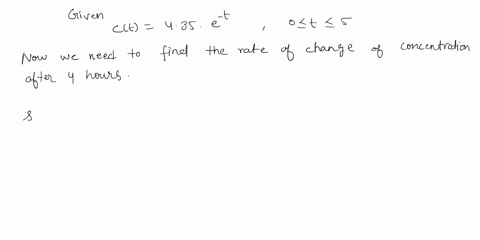 Given
c(t) = 4.35. e^-t , 0≤t ≤ 5
Now we need to find the rate of change of concentration
after 4 hours.
S